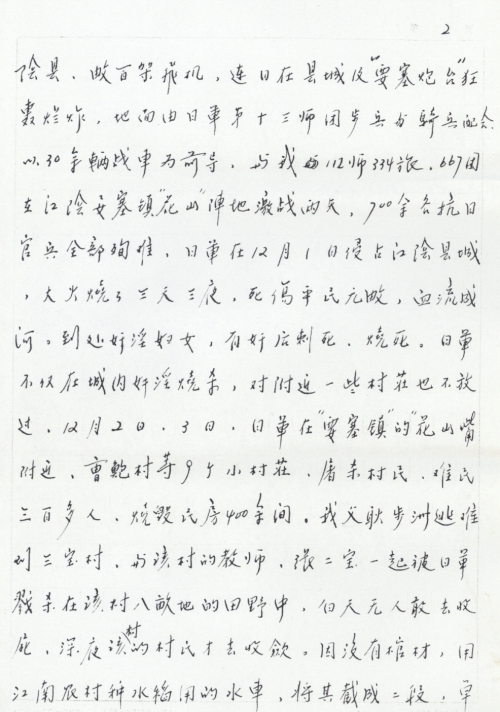 2
陰县、敵百架飛机，連日在县城及"要塞炮台"狂
轰烂炸，地面由日軍第十三师团步兵与騎兵配合
以30余輛战車为前导、与我112师334旅、667团
在江陰要塞镇"花山"陣地激战两天，700余名抗日
官兵全部殉难，日軍在12月1日侵占江陰县城
，大火燒了三天三夜，死傷平民无數，血流成
河。到处奸淫妇女，有奸后刺死、燒死。日軍
不仅在城内奸淫燒杀，对附近一些村莊也不放
过，12月2日、3日，日軍在"要塞镇"的"花山嘴
附近，曹鲍村等9个小村莊，屠杀村民、难民
三百多人，燒毀民房400余间，我父耿步洲逃难
到三宝村，与该村的教师，張二宝一起被日軍
戮杀在该村八畝地的田野中，白天无人敢去收
屍，深夜该村的村民才去收歛。因没有棺材，用
江南农村种水稻用的水車，将其截成二段，草